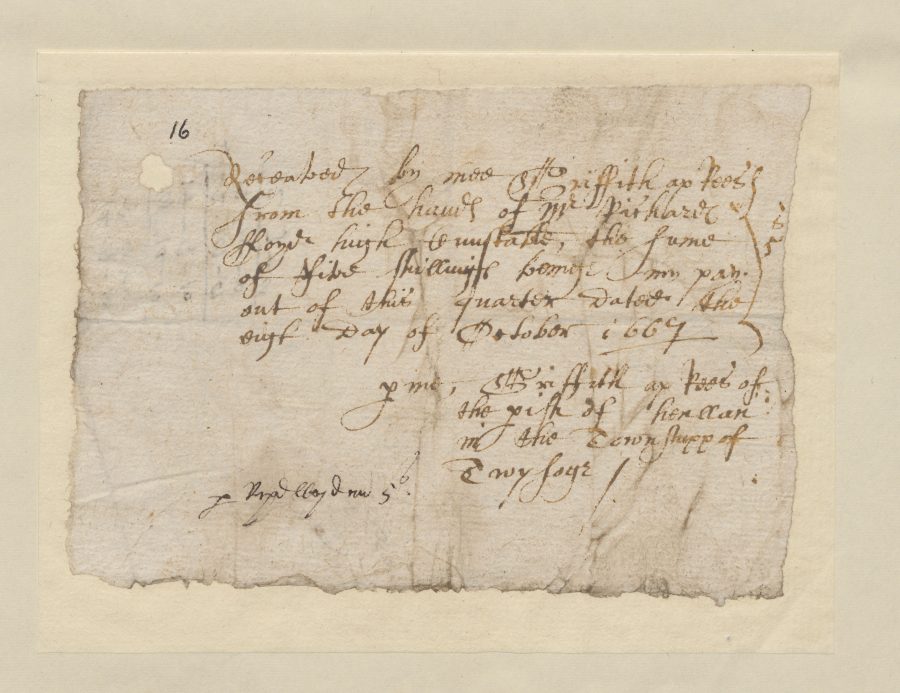 16
Receaved by mee Griffith ap Rees
from the hands of Mr Richard
ffoyd high Cunstable, the sume
of five shillings beinge my pay
out of this quarter Dated the
eight Day of October 1667
p me, Griffith ap Rees of
the pish of henllan
in the Townshipp of
Twysoge
5s